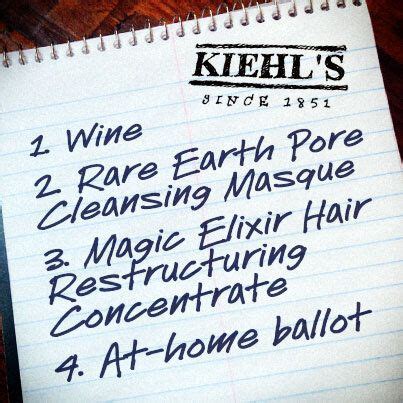 KIEHL'S
SINCE 1851
1. Wine
2. Rare Earth Pore
Cleansing Masque
3. Magic Elixir Hair
Restructuring
Concentrate
4. At-home ballot